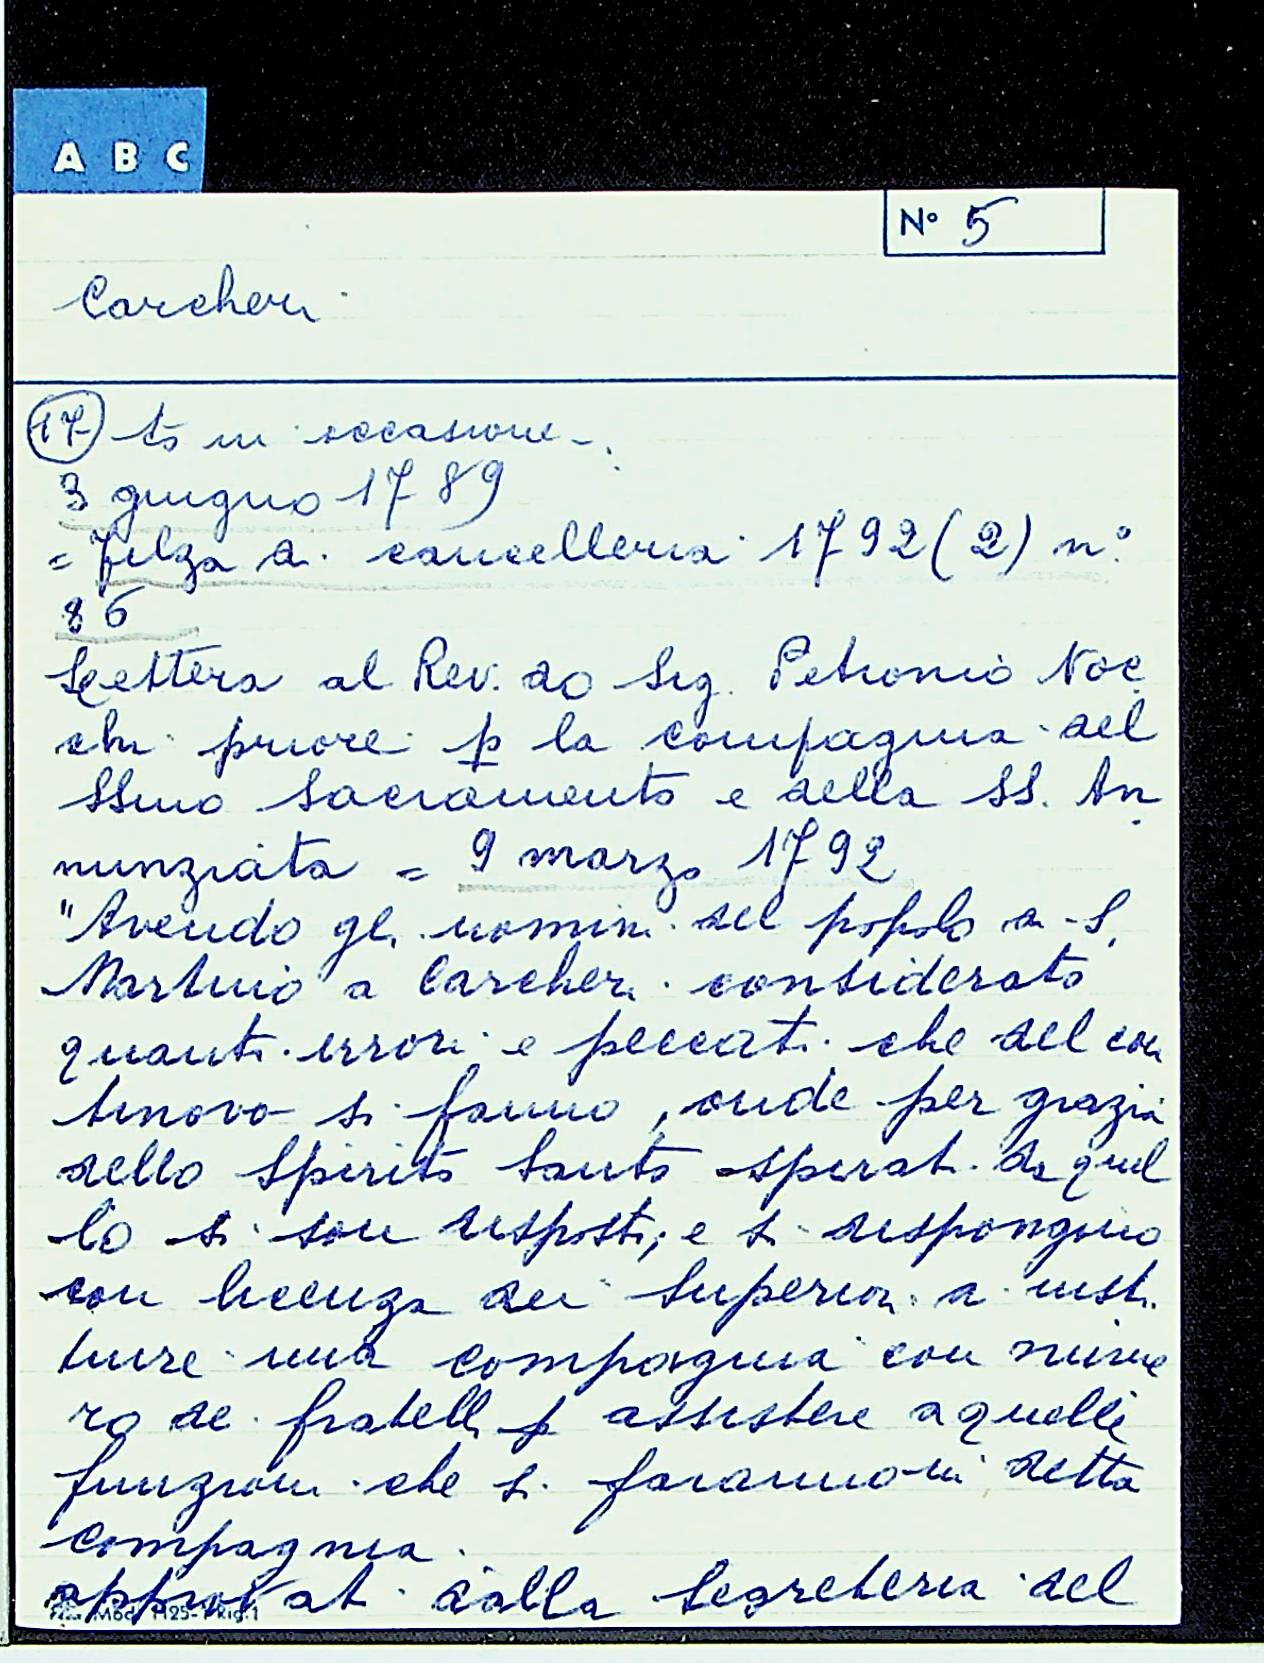 A B C
N° 5
Carcheri
17 to in occasione.
3 giugno 1789
= Filza di cancelleria 1792 (2) n°
86
Lettera al Rev.do Sig. Petronio Noc
chi priore p la compagnia del
SSmo Sacramento e della SS. An
nunziata = 9 marzo 1792
"Avendo gli uomini del popolo di S.
Martino a Carcheri considerato
quanti errori e peccati che del con
tinovo si fanno, onde per grazia
dello Spirito Santo sperati da quel
lo si son disposti, e si dispongono
con licenza dei Superiori a insti
tuire una compagnia con nume
ro de fratelli p assistere a quelle
funzioni che si faranno in detta
compagnia.
approvati dalla Segreteria del